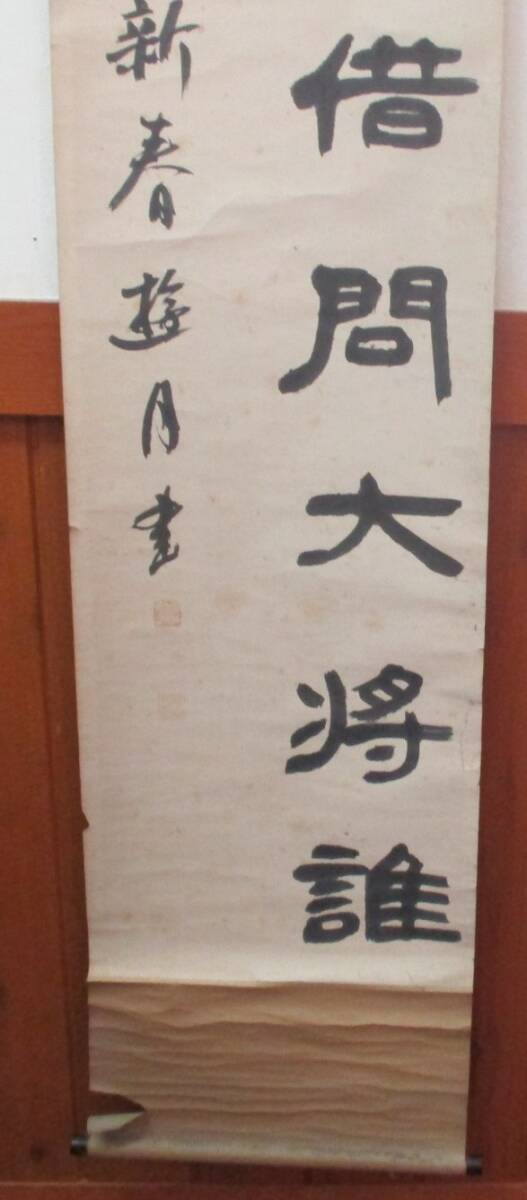 借問大将誰
新春遊月書